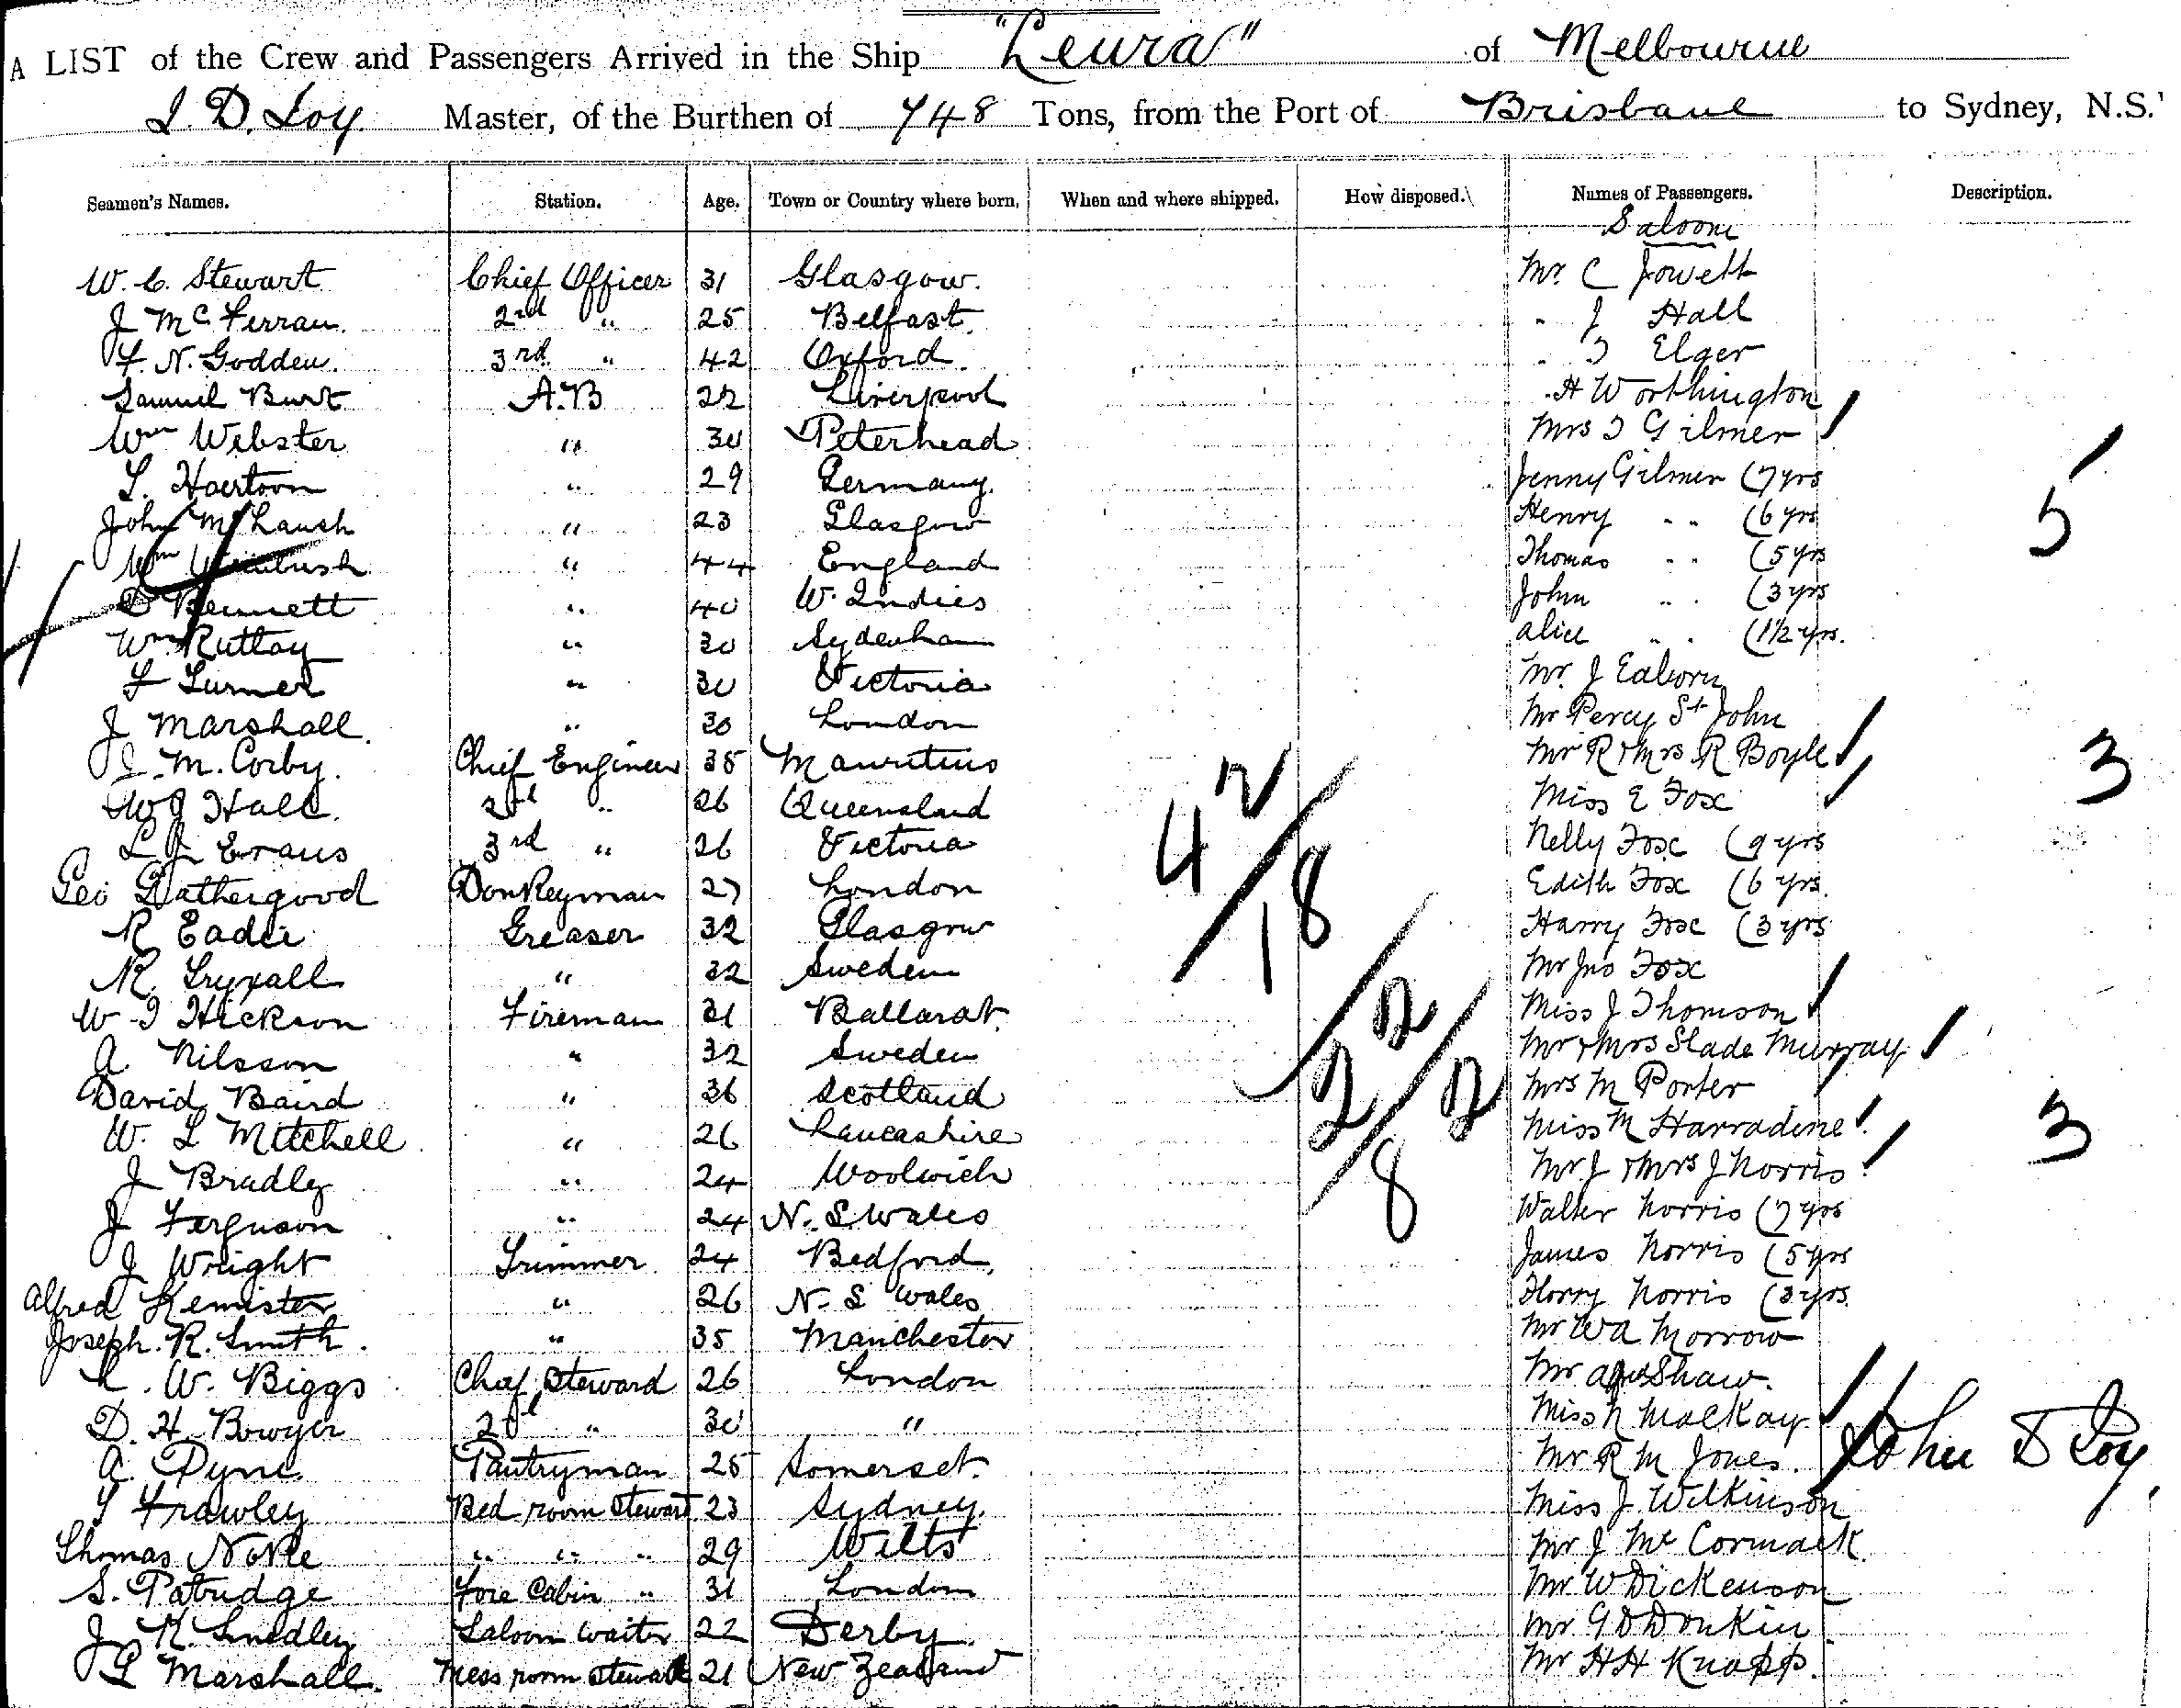 A LIST of the Crew and Passengers Arrived in the Ship "Leura" of Melbourne
J. D. Loy Master, of the Burthen of 748 Tons, from the Port of Brisbane to Sydney, N.S.
Seamen's Names. Station. Age. Town or Country where born. When and where shipped. How disposed. Names of Passengers. Description.
Saloon
W. C. Stewart Chief Officer 31 Glasgow. Mr. C Jowett
J McFerran. 2nd " 25 Belfast. " J Hall
F. N. Godden. 3rd " 42 Oxford. " T Elger
Samuel Burt A.B 22 Liverpool " H Worthington
Wm Webster " 30 Peterhead Mrs T Gilmer
L. " 29 Germany. Jenny Gilmer (7 yrs 5
John " 23 Glasgow Henry " " (6 yrs
Wm " 44 England Thomas " " (5 yrs
Bennett " 40 W. Indies John " " (3 yrs
Wm Ruttay " 30 Sydenham Alice " " (1½ yrs.
F Turner " 30 Victoria Mr. J Eaborn
J Marshall. " 30 London Mr Percy St John
J. M. Corby. Chief Engineer 35 Mauritius Mr R & Mrs R Boyle 3
W J Hall. 2d " 26 Queensland Miss E Fox
L J Evans 3rd " 26 Victoria Nelly Fox (9 yrs
42/18
Geo Gathergood Donkeyman 27 London Edith Fox (6 yrs.
R Eadie Greaser 32 Glasgow Harry Fox (3 yrs
R. " 32 Sweden Mr Jno Fox
W T Hickson Fireman 21 Ballarat. Miss J Thomson
A. Nilsson " 32 Sweden Mr & Mrs Slade Murray
22/8 2
David Baird " 36 Scotland Mrs M Porter
W. L Mitchell " 26 Lancashire Miss M Harradine 3
J Bradley " 24 Woolwich Mr J & Mrs J Norris
J Ferguson " 24 N. S Wales Walter Norris (7 yrs
J Wright Trimmer 24 Bedford. James Norris (5 yrs
Alfred Kemister " 26 N. S Wales Horry Norris (3 yrs.
Joseph. R. Smith. " 35 Manchester Mr W A Morrow
W. Biggs Chief Steward 26 London Mr Shaw.
D. H. Bowyer 2d " 30 " Miss N MacKay
A. Pyne Pantryman 25 Somerset. Mr R M Jones. John D Loy
T Frawley Bed room Steward 23 Sydney. Miss J Wilkinson
Thomas Noke " " " 29 Wilts Mr J McCormack
S. Patridge Fore Cabin " 31 London Mr W Dickenson
J K. Smedley Saloon waiter 22 Derby. Mr. G D Donkin
L Marshall. Mess room steward 21 New Zealand Mr H H Knapp.